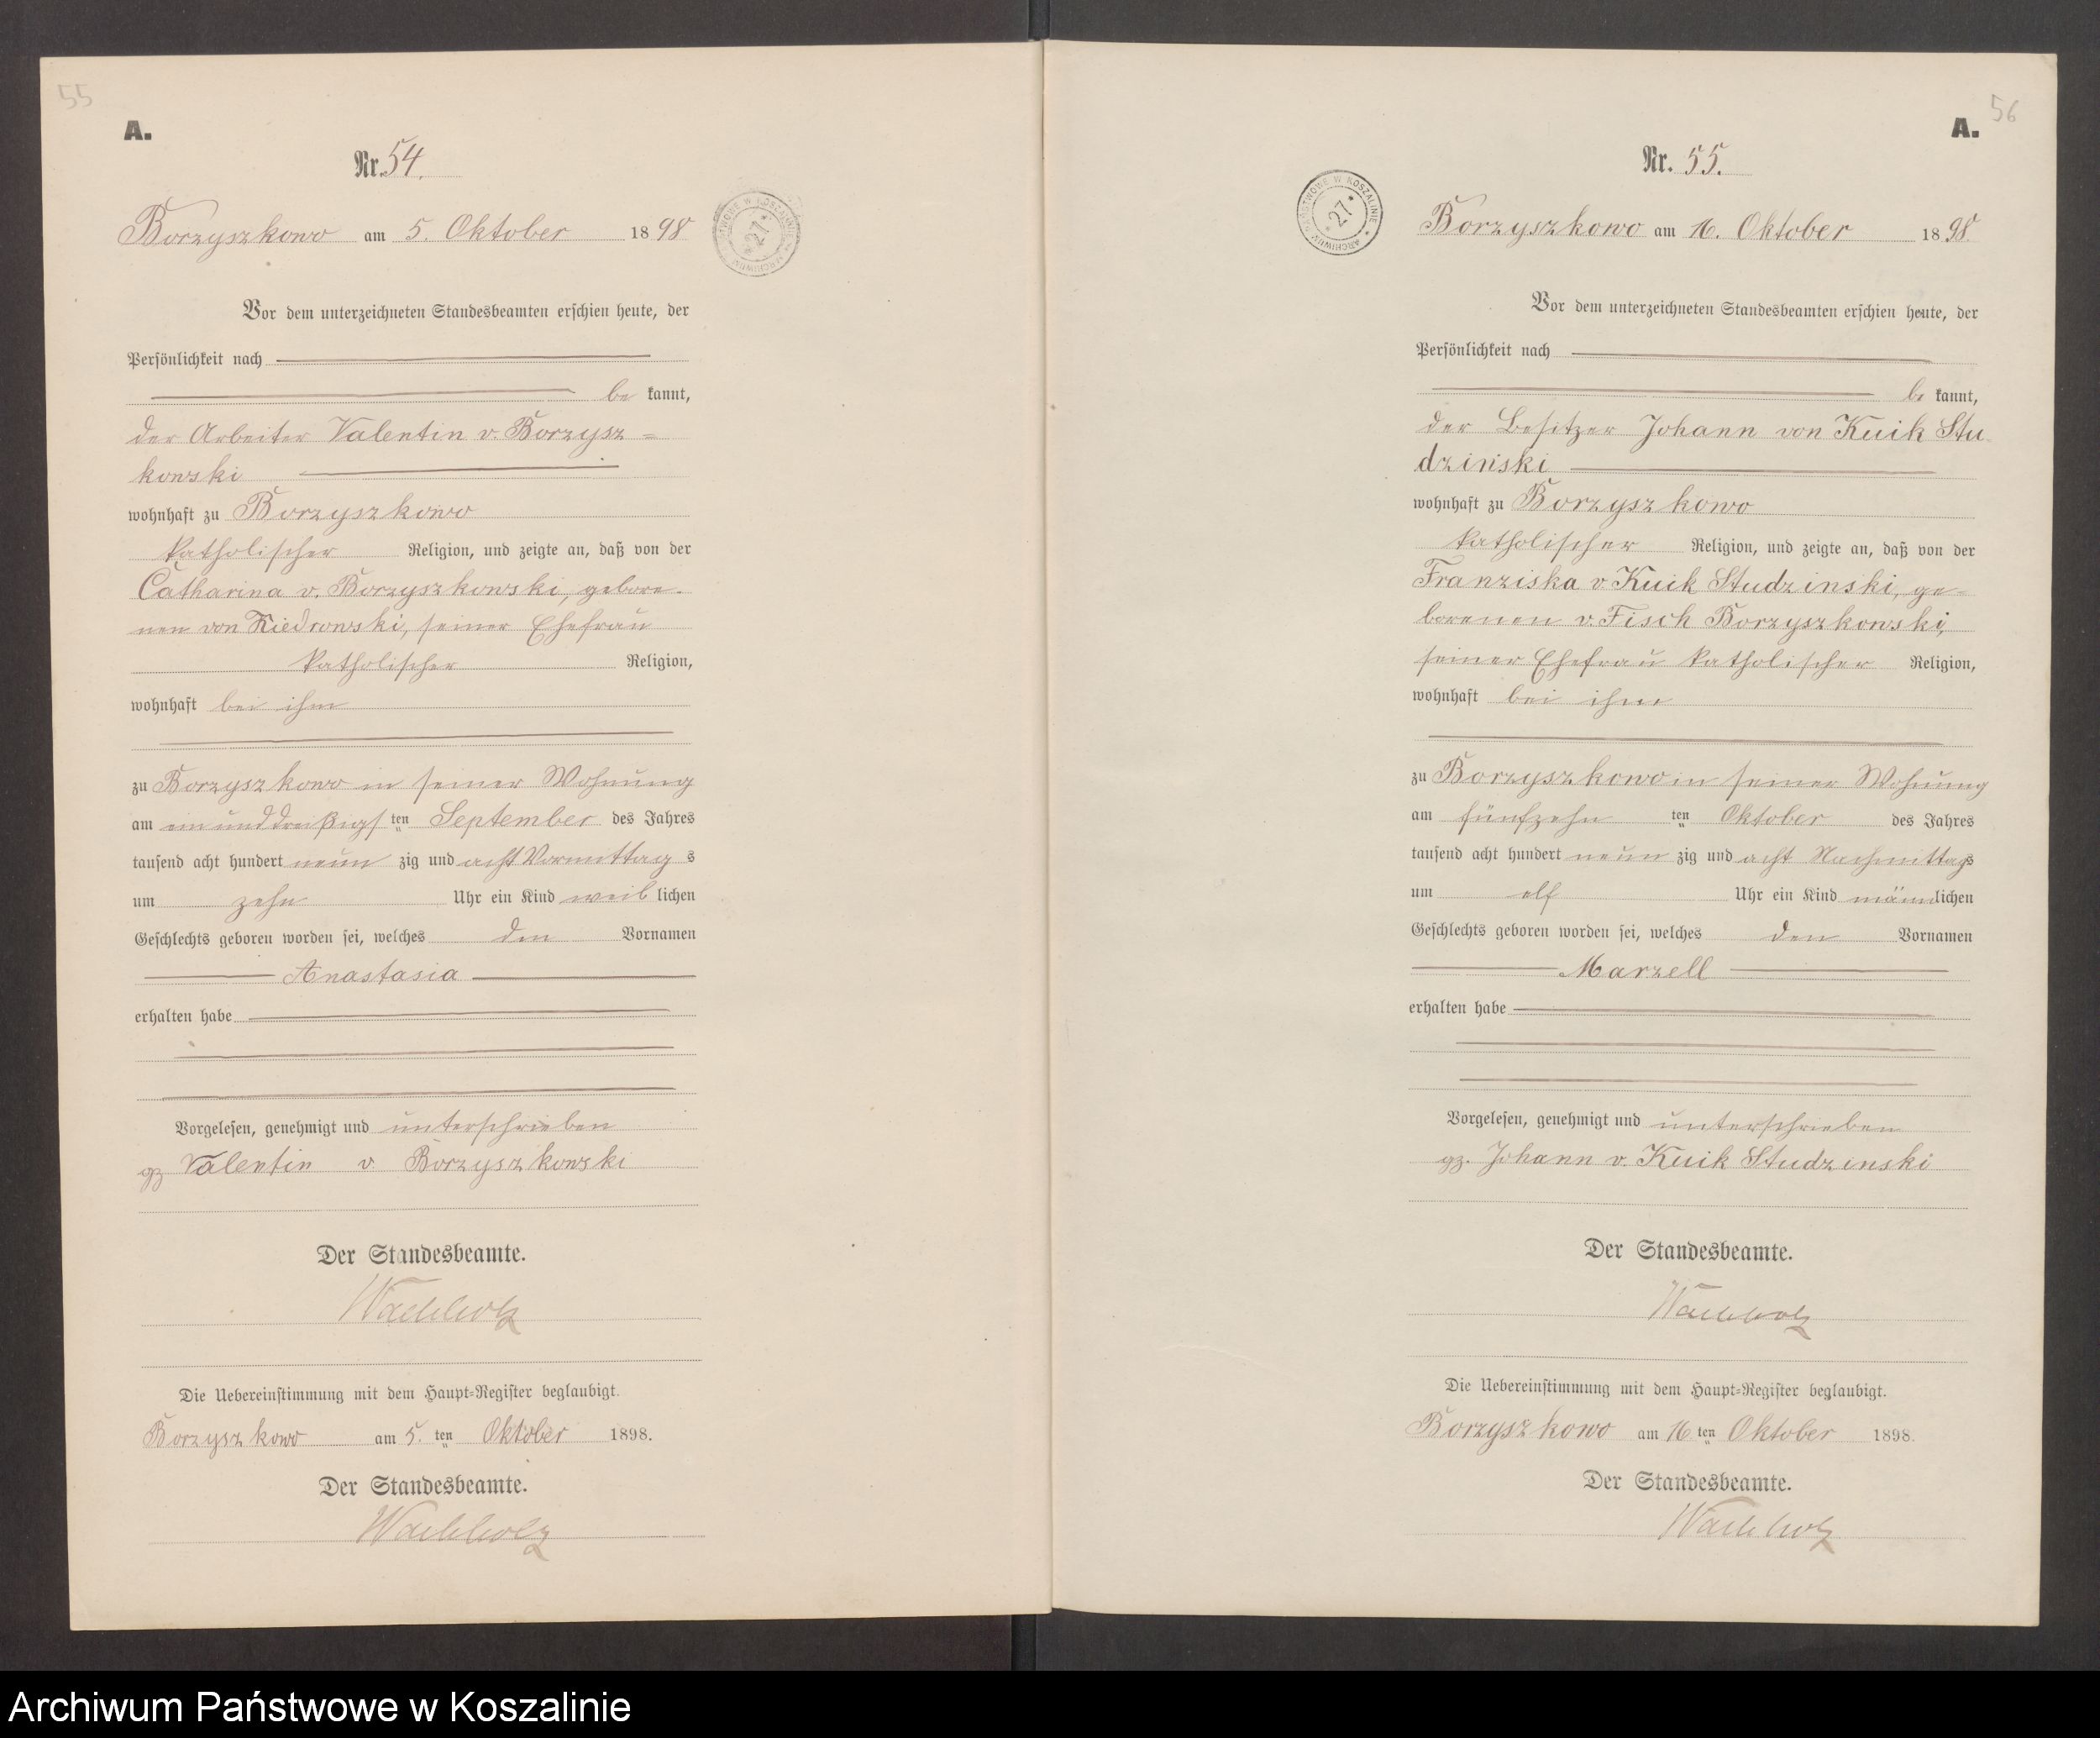 55
A.
Nr. 54.
Borzyszkowo am 5. Oktober 1898
ARCHIWUM PAŃSTWOWE W KOSZALINIE * 27 *
Vor dem unterzeichneten Standesbeamten erschien heute, der
Persönlichkeit nach
be kannt,
der Arbeiter Valentin v. Borzysz=
kowski
wohnhaft zu Borzyszkowo
katholischer Religion, und zeigte an, daß von der
Catharina v. Borzyszkowski, gebore-
nen von Kiedrowski, seiner Ehefrau
katholischer Religion,
wohnhaft bei ihm
zu Borzyszkowo in seiner Wohnung
am einunddreißigs ten September des Jahres
tausend acht hundert neun zig und acht Vormittag s
um zehn Uhr ein Kind weib lichen
Geschlechts geboren worden sei, welches den Vornamen
Anastasia
erhalten habe
Vorgelesen, genehmigt und unterschrieben
gz Valentin v Borzyszkowski
Der Standesbeamte.
Wachholz
Die Uebereinstimmung mit dem Haupt-Register beglaubigt.
Borzyszkowo am 5. ten Oktober 1898.
Der Standesbeamte.
Wachholz
56
A.
Nr. 55.
Borzyszkowo am 16. Oktober 1898.
ARCHIWUM PAŃSTWOWE W KOSZALINIE * 27 *
Vor dem unterzeichneten Standesbeamten erschien heute, der
Persönlichkeit nach
be kannt,
der Besitzer Johann von Kuik Stu-
dzinski
wohnhaft zu Borzyszkowo
katholischer Religion, und zeigte an, daß von der
Franziska v Kuik Studzinski, ge-
borenen v. Fisch Borzyszkowski,
seiner Ehefrau katholischer Religion,
wohnhaft bei ihm
zu Borzyszkowo in seiner Wohnung
am fünfzehn ten Oktober des Jahres
tausend acht hundert neun zig und acht Nachmittags
um elf Uhr ein Kind männlichen
Geschlechts geboren worden sei, welches den Vornamen
Marzell
erhalten habe
Vorgelesen, genehmigt und unterschrieben
gz. Johann v. Kuik Studzinski
Der Standesbeamte.
Wachholz
Die Uebereinstimmung mit dem Haupt-Register beglaubigt.
Borzyszkowo am 16 ten Oktober 1898.
Der Standesbeamte.
Wachholz
Archiwum Państwowe w Koszalinie